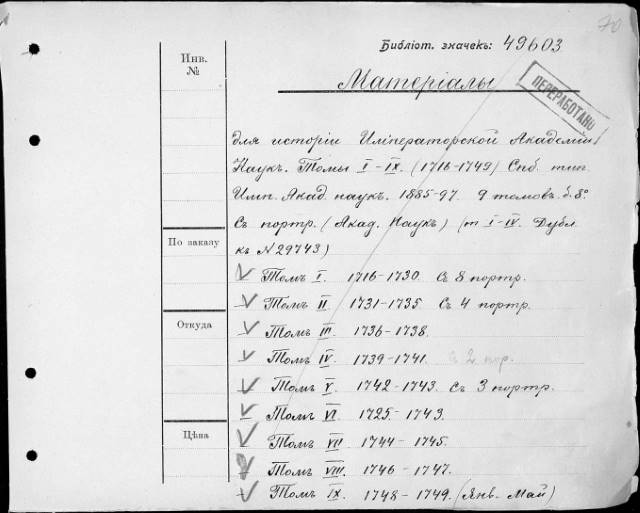 70
Библіот. значекъ: 49603
Инв.
№
Матеріалы
ПЕРЕРАБОТАНО
для исторіи Императорской Академіи
Наукъ. Томы I-IX. (1716-1749) Спб. тип.
Имп. Акад. наукъ. 1885-97. 9 томовъ. б. 8º.
Съ портр. (Акад. Наукъ) (т I-IV. Дубл.
къ N 29743)
По заказу
Томъ I. 1716-1730. Съ 8 портр.
Томъ II. 1731-1735. Съ 4 портр.
Откуда
Томъ III. 1736-1738.
Томъ IV. 1739-1741. Съ 2 пор.
Томъ V. 1742-1743. Съ 3 портр.
Томъ VI. 1725-1743.
Цѣна
Томъ VII. 1744-1745.
Томъ VIII. 1746-1747.
Томъ IX. 1748-1749. (Янв. Май)